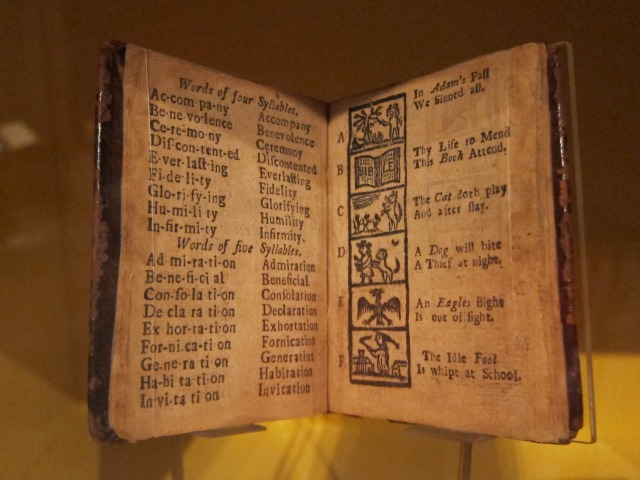 Words of four Syllables.
Ac-com-pa-ny Accompany
Be-ne-vo-lence Benevolence
Ce-re-mo-ny Ceremony
Diſ-con-tent-ed Diſcontented
E-ver-laſt-ing Everlaſting
Fi-de-li-ty Fidelity
Glo-ri-fy-ing Glorifying
Hu-mi-li-ty Humility
In-fir-mi-ty Infirmity.
Words of five Syllables.
Ad-mi-ra-ti-on Admiration
Be-ne-fi-ci-al Beneficial
Con-ſo-la-ti-on Conſolation
De-cla-ra-ti-on Declaration
Ex-hor-ta-ti-on Exhortation
For-ni-ca-ti-on Fornication
Ge-ne-ra-ti-on Generation
Ha-bi-ta-ti-on Habitation
In-vi-ta-ti-on Invitation
A
In Adam's Fall
We Sinned all.
B
BIB
Thy Life to Mend
This Book Attend.
C
The Cat doth play
And after ſlay.
D
A Dog will bite
A Thief at night.
E
An Eagles flight
Is out of ſight.
F
The Idle Fool
Is whipt at School.